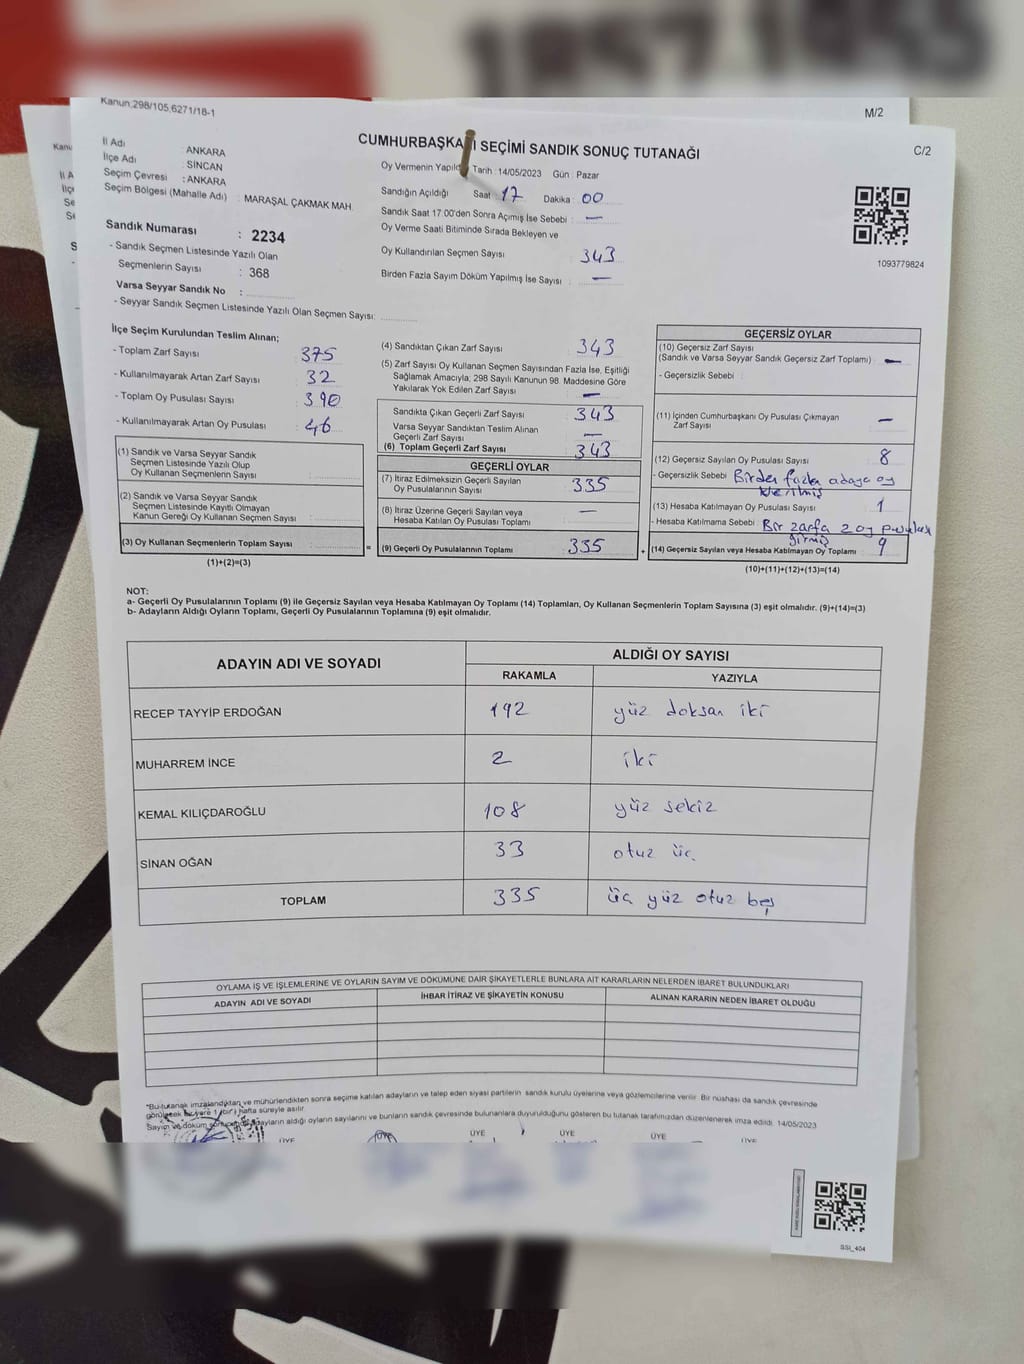 Kanun;298/105,6271/18-1
M/2
C/2
CUMHURBAŞKA I SEÇİMİ SANDIK SONUÇ TUTANAĞI
İl Adı : ANKARA
İlçe Adı : SİNCAN
Seçim Çevresi : ANKARA
Seçim Bölgesi (Mahalle Adı) : MARAŞAL ÇAKMAK MAH.
Sandık Numarası : 2234
- Sandık Seçmen Listesinde Yazılı Olan
Seçmenlerin Sayısı : 368
Varsa Seyyar Sandık No :
- Seyyar Sandık Seçmen Listesinde Yazılı Olan Seçmen Sayısı:
Oy Vermenin Yapıld Tarih : 14/05/2023 Gün : Pazar
Sandığın Açıldığı Saat : 17 Dakika : 00
Sandık Saat 17.00'den Sonra Açımış İse Sebebi : —
Oy Verme Saati Bitiminde Sırada Bekleyen ve
Oy Kullandırılan Seçmen Sayısı 343
Birden Fazla Sayım Döküm Yapılmış İse Sayısı : —
1093779824
İlçe Seçim Kurulundan Teslim Alınan;
- Toplam Zarf Sayısı 375
- Kullanılmayarak Artan Zarf Sayısı 32
- Toplam Oy Pusulası Sayısı 390
- Kullanılmayarak Artan Oy Pusulası 46
(1) Sandık ve Varsa Seyyar Sandık
Seçmen Listesinde Yazılı Olup
Oy Kullanan Seçmenlerin Sayısı
(2) Sandık ve Varsa Seyyar Sandık
Seçmen Listesinde Kayıtlı Olmayan
Kanun Gereği Oy Kullanan Seçmen Sayısı
(3) Oy Kullanan Seçmenlerin Toplam Sayısı =
(1)+(2)=(3)
(4) Sandıktan Çıkan Zarf Sayısı 343
(5) Zarf Sayısı Oy Kullanan Seçmen Sayısından Fazla İse, Eşitliği
Sağlamak Amacıyla; 298 Sayılı Kanunun 98. Maddesine Göre
Yakılarak Yok Edilen Zarf Sayısı —
Sandıkta Çıkan Geçerli Zarf Sayısı 343
Varsa Seyyar Sandıktan Teslim Alınan
Geçerli Zarf Sayısı —
(6) Toplam Geçerli Zarf Sayısı 343
GEÇERLİ OYLAR
(7) İtiraz Edilmeksizin Geçerli Sayılan
Oy Pusulalarının Sayısı 335
(8) İtiraz Üzerine Geçerli Sayılan veya
Hesaba Katılan Oy Pusulası Toplamı —
(9) Geçerli Oy Pusulalarının Toplamı 335 +
GEÇERSİZ OYLAR
(10) Geçersiz Zarf Sayısı
(Sandık ve Varsa Seyyar Sandık Geçersiz Zarf Toplamı) —
- Geçersizlik Sebebi :
(11) İçinden Cumhurbaşkanı Oy Pusulası Çıkmayan
Zarf Sayısı —
(12) Geçersiz Sayılan Oy Pusulası Sayısı 8
- Geçersizlik Sebebi : Birden fazla adaya oy
verilmiş
(13) Hesaba Katılmayan Oy Pusulası Sayısı 1
- Hesaba Katılmama Sebebi : Bir zarfa 2 oy pusulası
girmiş
(14) Geçersiz Sayılan veya Hesaba Katılmayan Oy Toplamı 9
(10)+(11)+(12)+(13)=(14)
NOT:
a- Geçerli Oy Pusulalarının Toplamı (9) ile Geçersiz Sayılan veya Hesaba Katılmayan Oy Toplamı (14) Toplamları, Oy Kullanan Seçmenlerin Toplam Sayısına (3) eşit olmalıdır. (9)+(14)=(3)
b- Adayların Aldığı Oyların Toplamı, Geçerli Oy Pusulalarının Toplamına (9) eşit olmalıdır.
ADAYIN ADI VE SOYADI
ALDIĞI OY SAYISI
RAKAMLA YAZIYLA
RECEP TAYYİP ERDOĞAN 192 yüz doksan iki
MUHARREM İNCE 2 iki
KEMAL KILIÇDAROĞLU 108 yüz sekiz
SİNAN OĞAN 33 otuz üç
TOPLAM 335 üç yüz otuz beş
OYLAMA İŞ VE İŞLEMLERİNE VE OYLARIN SAYIM VE DÖKÜMÜNE DAİR ŞİKAYETLERLE BUNLARA AİT KARARLARIN NELERDEN İBARET BULUNDUKLARI
ADAYIN ADI VE SOYADI İHBAR İTİRAZ VE ŞİKAYETİN KONUSU ALINAN KARARIN NEDEN İBARET OLDUĞU
*Bu tutanak imzalandıktan ve mühürlendikten sonra seçime katılan adayların ve talep eden siyasi partilerin sandık kurulu üyelerine veya gözlemcilerine verilir. Bir nüshası da sandık çevresinde
görülecek bir yere 1 (bir) hafta süreyle asılır.
Sayım ve döküm adayların aldığı oyların sayılarını ve bunların sandık çevresinde bulunanlara duyurulduğunu gösteren bu tutanak tarafımızdan düzenlenerek imza edildi. 14/05/2023
ÜYE ÜYE ÜYE ÜYE ÜYE ÜYE
SSİ_404